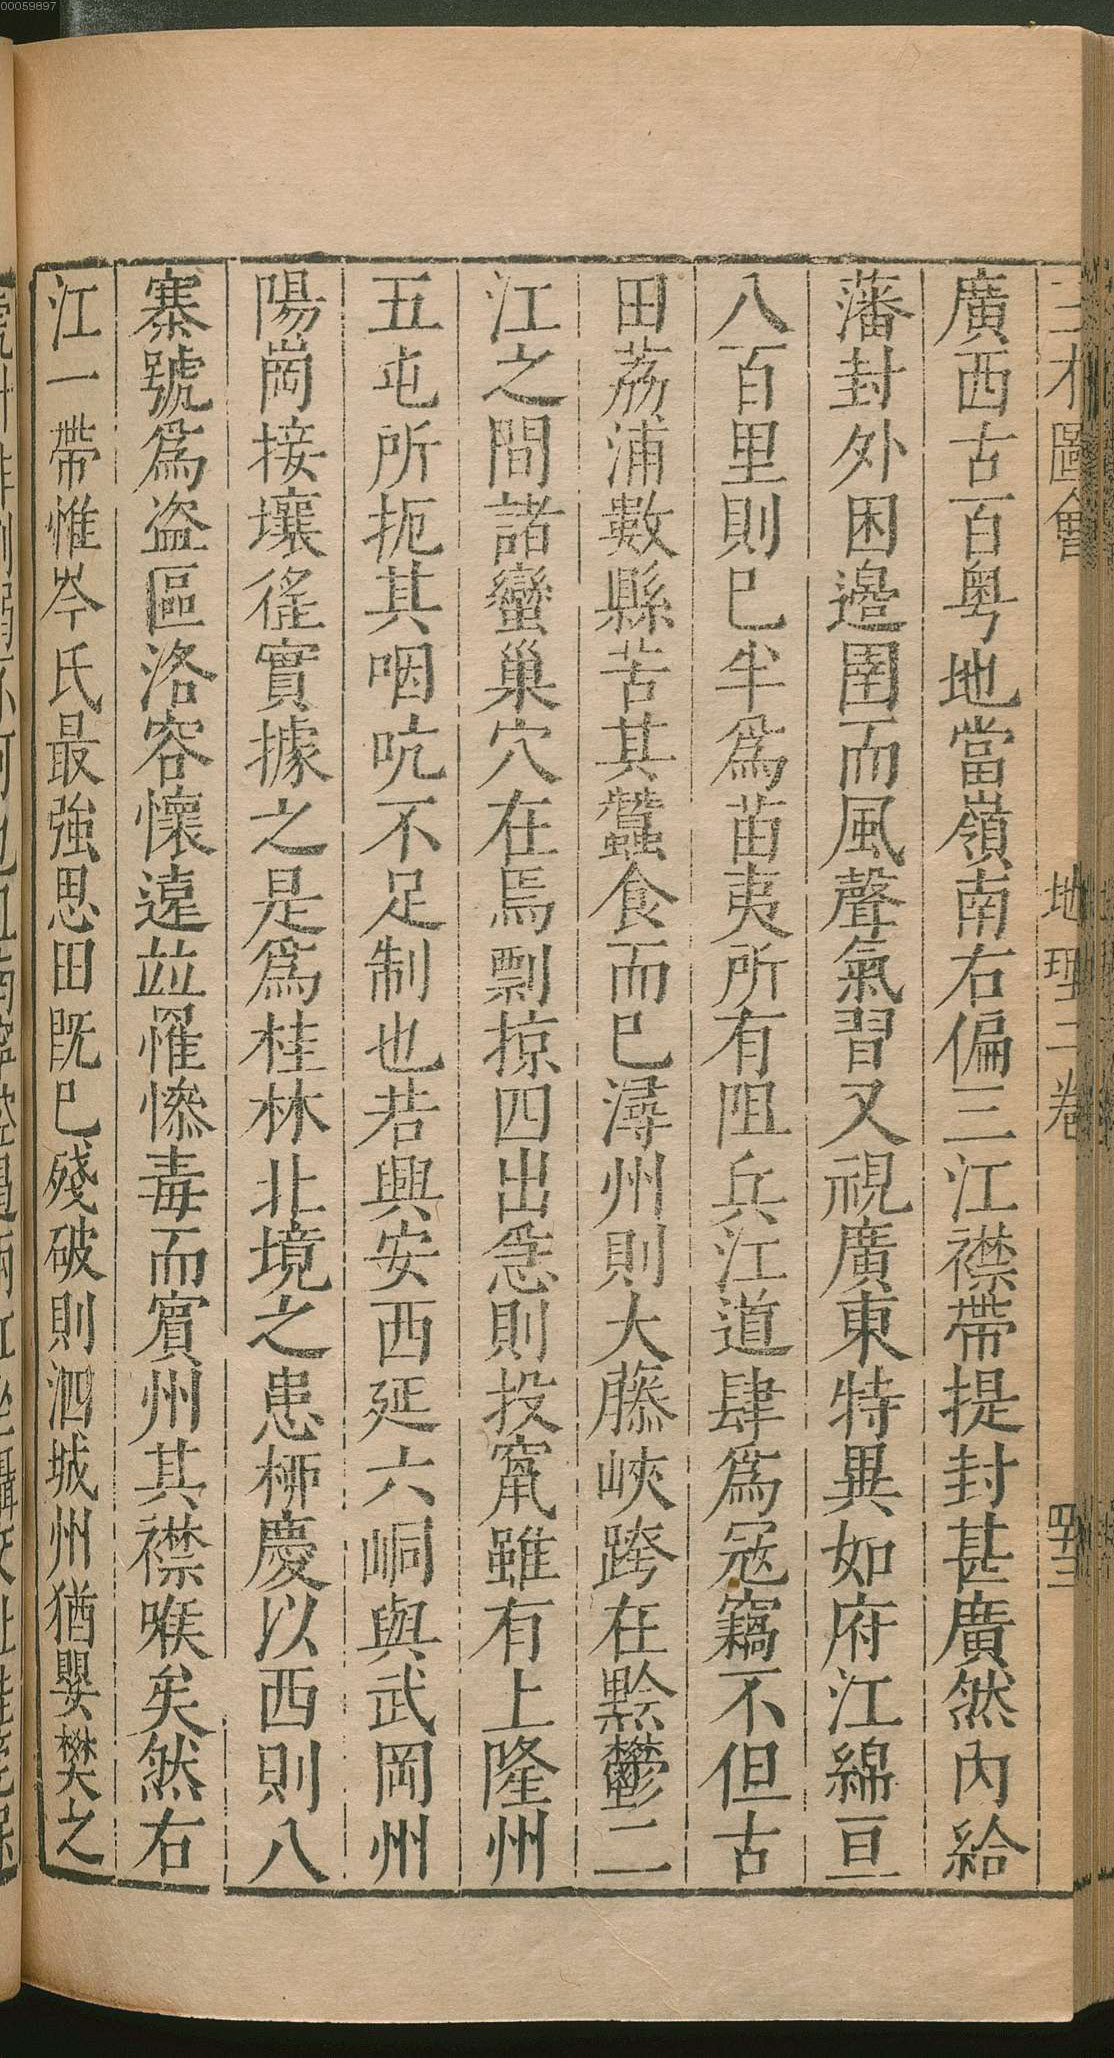 00059897
三才圖會 地理二卷 四十三
廣西古百粤地當嶺南右偏三江襟帶提封甚廣然內給
藩封外困邉圉而風聲氣習又視廣東特異如府江綿亘
八百里則巳半爲苗夷所有阻兵江道肆爲冦竊不但古
田荔浦數縣苦其蠶食而巳潯州則大藤峽跨在黔鬱二
江之間諸蠻巢穴在焉剽掠四出急則投竄雖有上隆州
五屯所扼其咽吭不足制也若興安西延六峒與武岡州
陽崗接壤徭實據之是爲桂林北境之患柳慶以西則八
寨號爲盗區洛容懷遠竝罹慘毒而賓州其襟喉矣然右
江一帶惟岑氏最強思田既巳殘破則泗城州猶嬰樊之